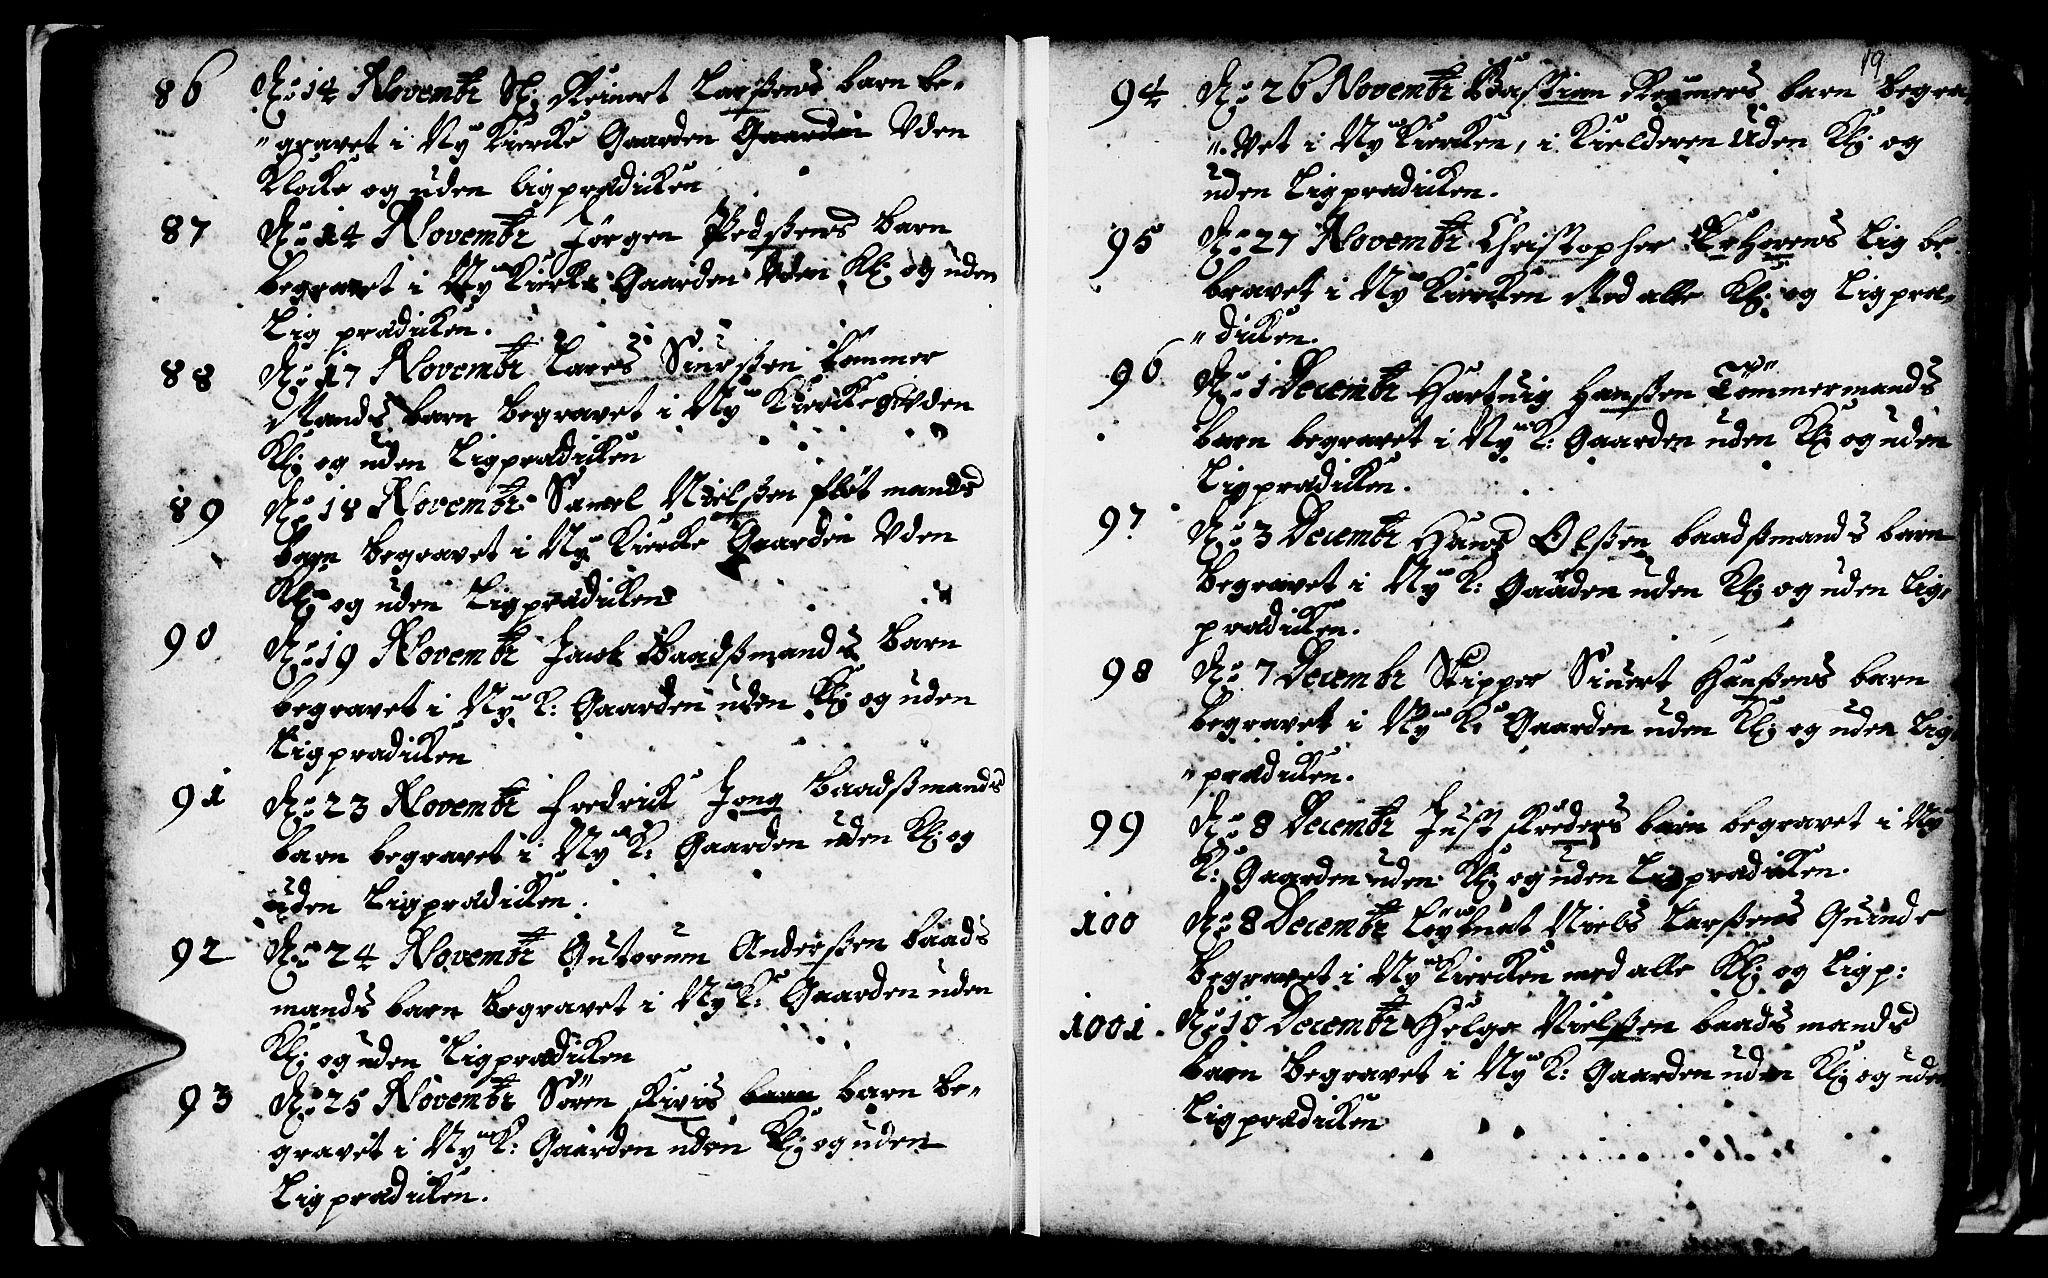 86 N:o 14 Novembr Sk: Reinert Larßens barn be-
"gravet i Ny Kircke Gaarden Gaarden Uden
Klocke og uden ligprædicken
87 N:o 14 Novembr Jørgen Pedßens barn
begravet i Ny Kircke Gaarden Uden Kl: og uden
Lig prædicken.
88 N:o 17 Novembr Lares Siurßen tømmer
Mands barn begravet i Ny Kircke G: Uden
Kl: og uden Ligprædicken
89 N:o 18 Novembr Samel Nielßen fløt mands
barn begravet i Ny Kircke Gaarden Uden
Kl: og uden Ligprædicken
90 N:o 19 Novembr Jacob Baadßmands barn
begravet i Ny K: Gaarden uden Kl: og uden
Ligprædicken
91 N:o 23 Novembr Fredrick Jong baadßmands
barn begravet i Ny K: Gaarden uden Kl: og
uden Ligprædicken.
92 N:o 24 Novembr Gutorum Anderßen baads
mands barn begravet i Ny K: Gaarden uden
Kl: og uden Ligprædicken
93 N:o 25 Novembr Søren Skivis barn barn be-
gravet i Ny K: Gaarden uden Kl: og uden
Ligprædicken.
19
94 N:o 26 Novembr Baßtian Reimers barn begra
"vet i Ny Kircken, i Kielderen uden Kl: og
uden Ligprædicken.
95 N:o 27 Novembr Christopher Lig be
bravet i Ny Kircken Med alle Kl: og Ligpræ-
"dicken.
96 N:o 1 Decembr Hartuig Hanßen Tømmermands
barn begravet i Ny K: Gaarden uden Kl: og uden
Ligprædicken.
97 N:o 3 Decembr Hans Olßen baadßmands barn
begravet i Ny K: Gaarden uden Kl: og uden Lig-
prædicken.
98 N:o 7 Decembr Skipper Siuert Hanßens barn
begravet i Ny K: Gaarden uden Kl: og uden Lig-
"prædicken.
99 N:o 8 Decembr Just Skreders barn begravet i Ny
K: Gaarden uden Kl: og uden Ligprædicken.
100 N:o 8 Decembr Løytnat Niels Larßens Quinde
begravet i Ny Kircken med alle Kl: og Ligp:
1001. N:o 10 Decembr Helge Nielßen baadsmands
barn begravet i Ny K: Gaarden uden Kl: og uden
Ligprædicken